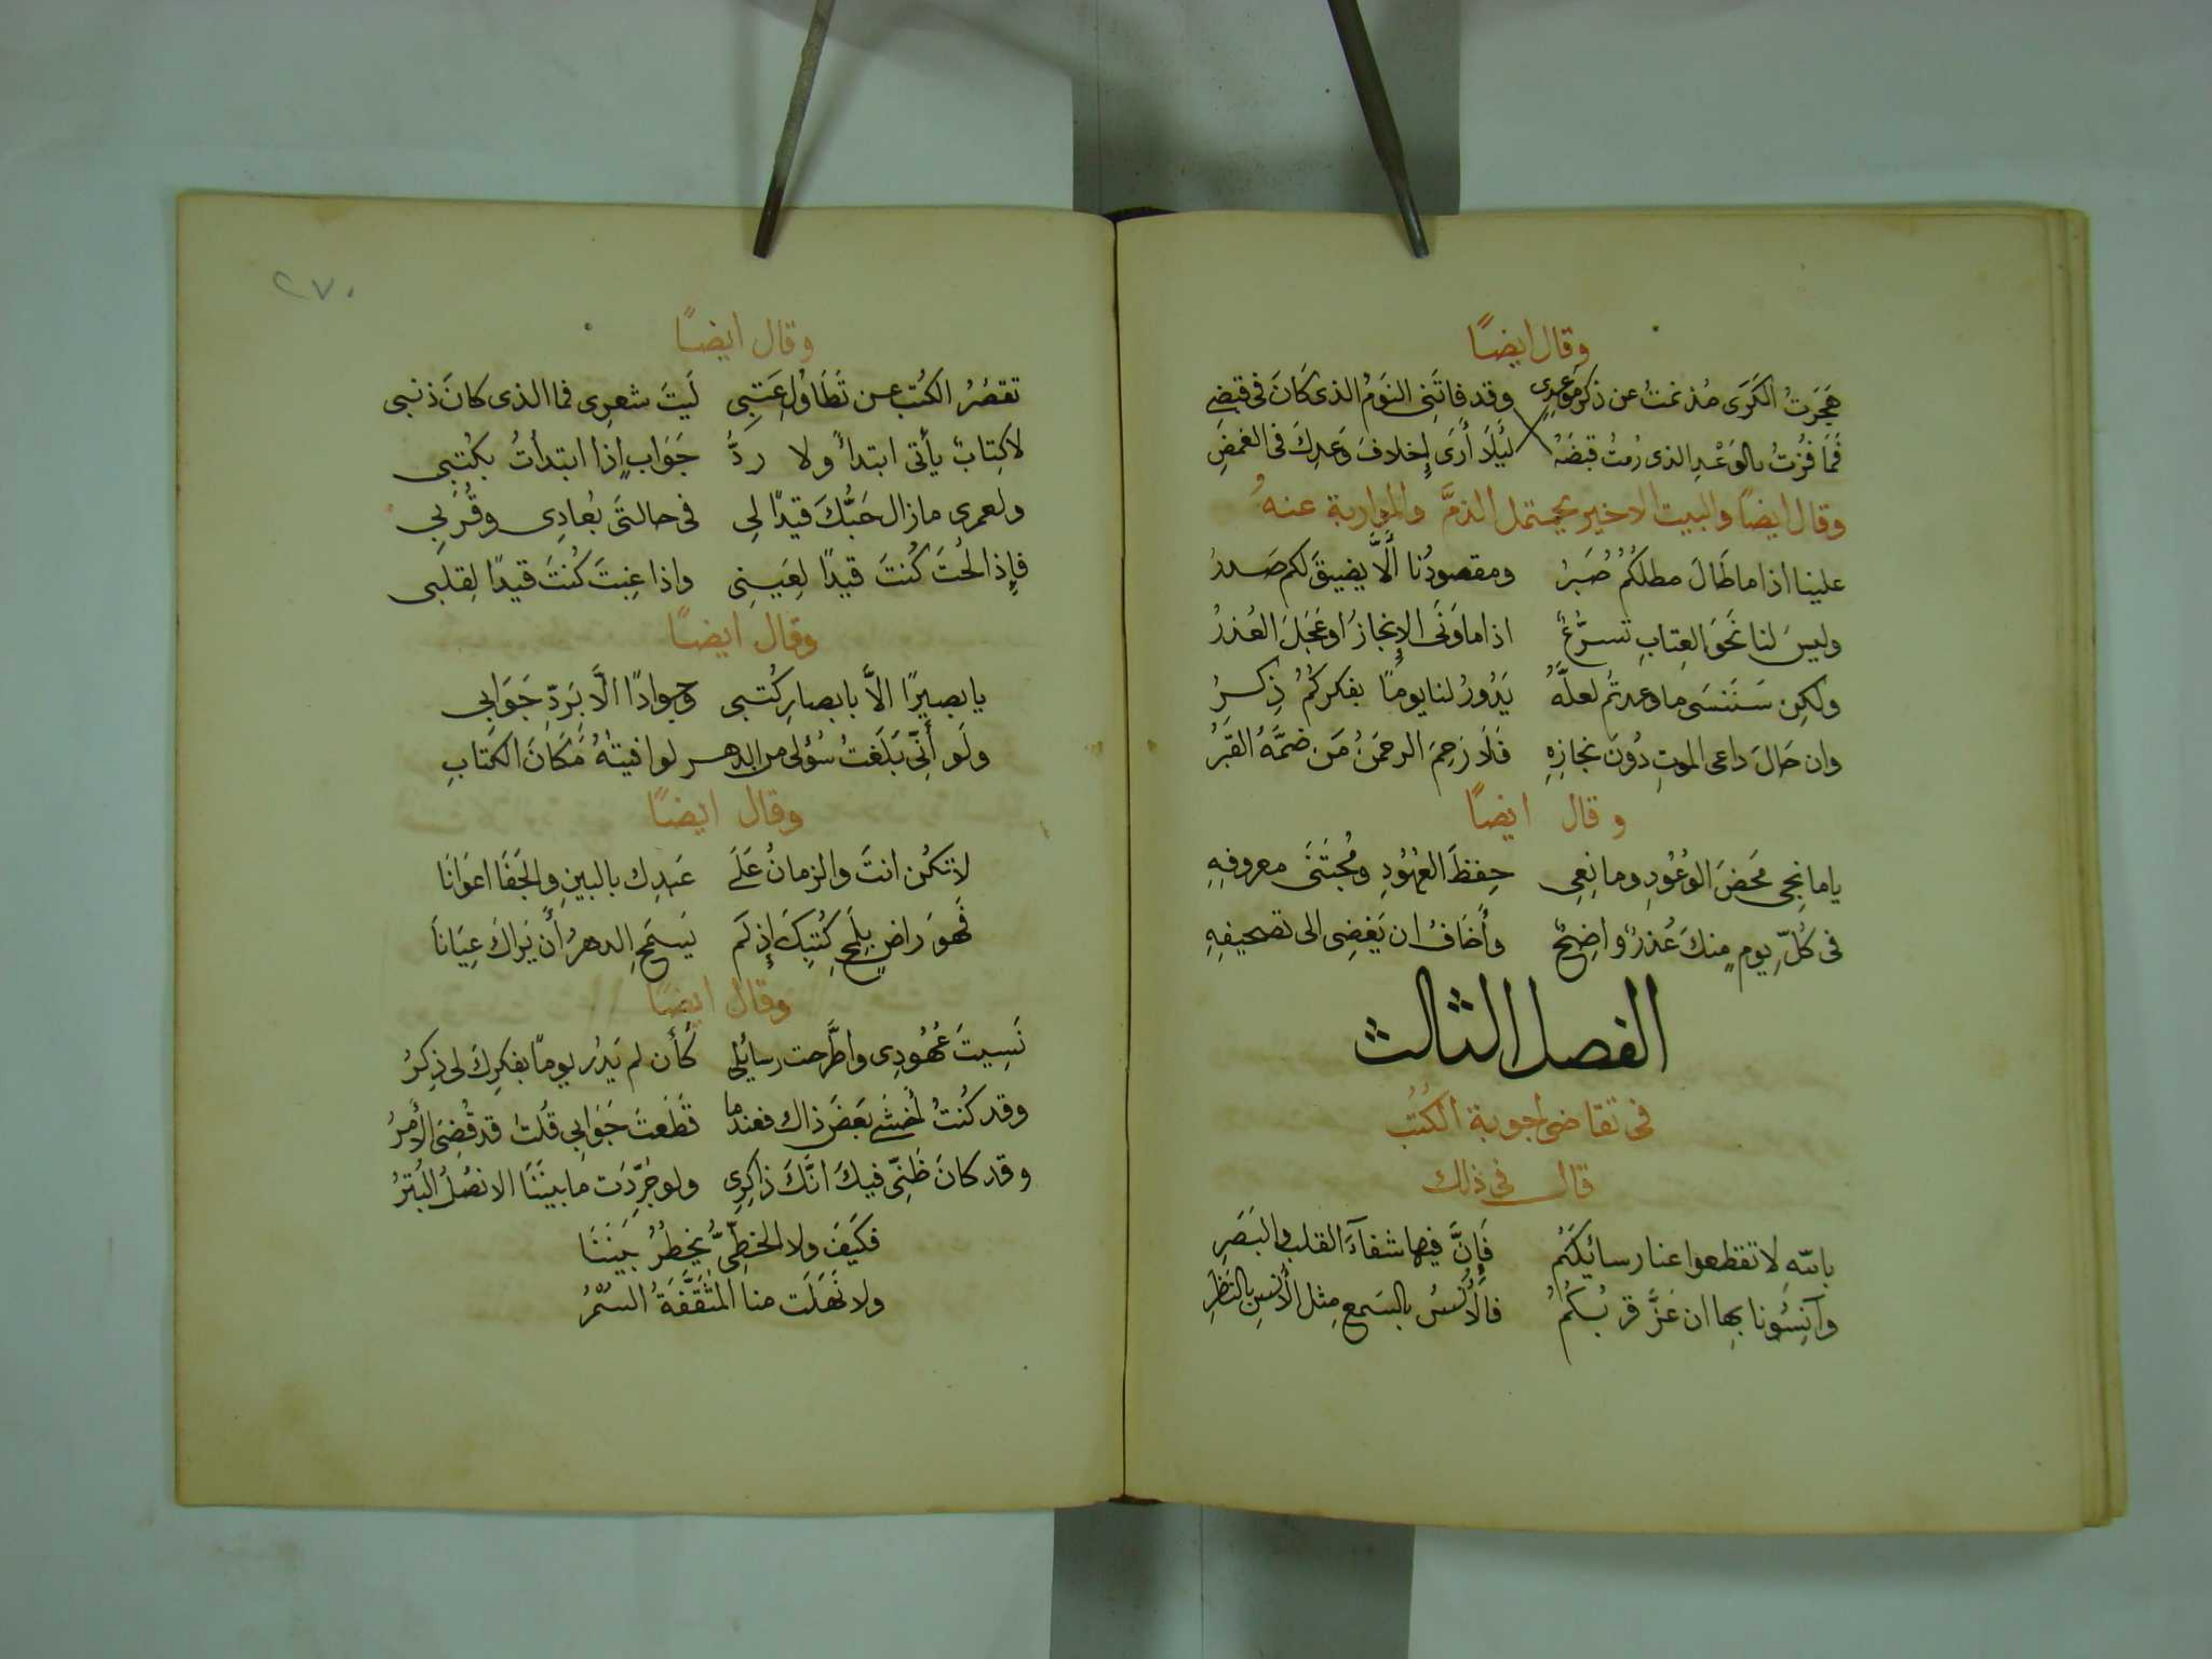 وقال ايضًا
هَجَرتُ الكَرَى مُذ نمتُ عن ذكر مَوعدِى وقد فاتَنِى النَومُ الذى كَانَ فى قبضِى
فَمَا فُزتُ بالوَعْدِ الذى رُمتُ قبضَهُ لَيْلَا أَرَى إِخلافَ وَعدِكَ فى الغمضِ
وقال ايضًا والبيت الاخير يحتمل الذمَّ والموَاربة عنهُ
علينا اذا ما طَالَ مطلكُمُ صَبرُ ومقصودُنا أَلَّا يضيقَ لكم صَدرُ
وليسَ لنا نَحوَ العِتابِ تسرُّعٌ اذا ما وَنَى الإِنجازُ اوعَجَلَ العُذرُ
ولكِن سَنَنسَى ما وعدتُم لعلَّهُ يَدُورُ لنا يومًا بفكركُمُ ذِكرُ
وان حَالَ داعى الموتِ دُونَ نجازِهِ فَلَا رَحِمَ الرحمنُ مَن ضمَّهُ القَبرُ
وقال ايضًا
ياما نِحِى مَحضَ الوُعُودِ وما نِعِى حِفظَ العُهُودِ ومُجتَنَى معروفِهِ
فى كُلِّ يومٍ منكَ عُذرٌ واضِحٌ وأَخَافُ ان يَفضِى الى تصحيفِهِ
الفصل الثالث
فى تقاضى اجوبة الكُتُب
قال فى ذلك
باللّهِ لا تقطعوا عنا رسائِلكُم فَإِنَّ فيها شفآءَ القلب والبَصَرِ
وآنِسُونا بِها ان عَزَّ قربُكُمُ فالأُنسُ بالسَمعِ مِثل الأُنسِ بالنَظَرِ
٢٧٠
وقال ايضًا
تقصُرُ الكُتب عن تَطَاوُلِ عَتبِى لَيتَ شعرِى فما الذى كانَ ذنبى
لا كِتابٌ يأتى ابتدأً ولا ردُّ جَوَابٍ إِذا ابتدأتُ بكُتبِى
ولعمرى مازال حَبُّكَ قيدًا لِى فى حالتَى بُعادِى وقُربِى
فإِذا لُحتَ كُنتَ قيدًا لِعَينِى واذا غِبتَ كُنتَ قيدًا لِقلبى
وقال ايضًا
يا بصيرًا الاَّ بابصارِ كُتبى وجوادًا الَّا بَردِّ جَوَابِى
ولَو أَنِّى بَلَغتُ سُؤلى من الدهر لوافيتُهُ مَكَانَ الكَتابِ
وقال ايضًا
لا تكُن انتَ والزمانُ عَلَى عَبدِك بالبينِ والجَفَا اعَوَانَا
فَهوَ راضٍ بِلَمحِ كُتبِكَ إِذ لَم يَسمَحِ الدهرُ أَن يَراكَ عِيَانَا
وقال ايضًا
نَسِيتَ عُهُودِى واطَّرحت رسائِلى كَأَن لم يَدُر يومًا بفكرِكَ لى ذِكرُ
وقد كُنتُ أخشَى بَعضَ ذاك فعندما قَطَعتَ جَوَابِى قُلتُ قد قُضِىَ الأَمرُ
وقد كانَ ظَنِّى فيكَ انَّكَ ذاكِرِى ولو جُرِّدَت ما بينَنَا الانصُلُ البُترُ
فكَيَفَ ولا الخطِّىُّ يَخطُرُ بَينَنَا
ولا نَهَلَت منا المثَقَّفَةُ السُمرُ